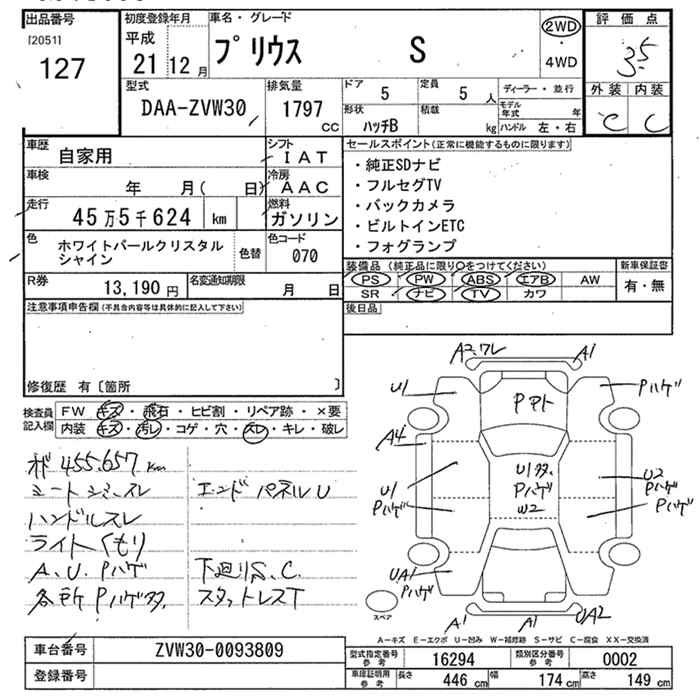 出品番号
[2051]
127
初度登録年月
平成
21 12 月
車名・グレード
プリウス S
2WD
・
4WD
評価点
3.5
外装 内装
C C
型式
DAA-ZVW30
排気量
1797
CC
ドア 5
定員 5 人
形状 ハッチB
積載 kg
ディーラー・並行
モデル年式 年
ハンドル 左・右
車歴
自家用
シフト
IAT
車検
年 月( 日)
冷房
AAC
走行
45万5千624 km
燃料
ガソリン
色
ホワイトパールクリスタル
シャイン
色替
色コード
070
R券
13,190 円
名変通知期限
月 日
セールスポイント(正常に機能するものに限ります)
・純正SDナビ
・フルセグTV
・バックカメラ
・ビルトインETC
・フォグランプ
装備品 (純正品に限り○をつけてください)
PS PW ABS エアB AW
SR ナビ TV カワ
新車保証書
有・無
後日品
注意事項申告欄(不具合内容等は具体的に記入して下さい)
修復歴 有〔箇所 〕
検査員
記入欄
FW キズ・飛石・ヒビ割・リペア跡・×要
内装 キズ・汚レ・コゲ・穴・スレ・キレ・破レ
455,657 Km
シートシミ、スレ
エンドパネルU
ハンドルスレ
ライトくもり
A、U、Pハゲ
下廻りS、C、
各所Pハゲ多
スタットレスT
A2,ワレ
A1
U1
Pハゲ
A4
U1多、
Pハゲ
W2
U1
Pハゲ
U2
Pハゲ
Pハゲ
UA1
Pハゲ
A1
A1
UA2
スペア
A-キズ E-エクボ U-凹み W-補修跡 S-サビ C-腐食 XX-交換済
車台番号
ZVW30-0093809
登録番号
型式指定番号
参考
16294
類別区分番号
参考
0002
車庫証明用
参考
長さ 446 cm
幅 174 cm
高さ 149 cm